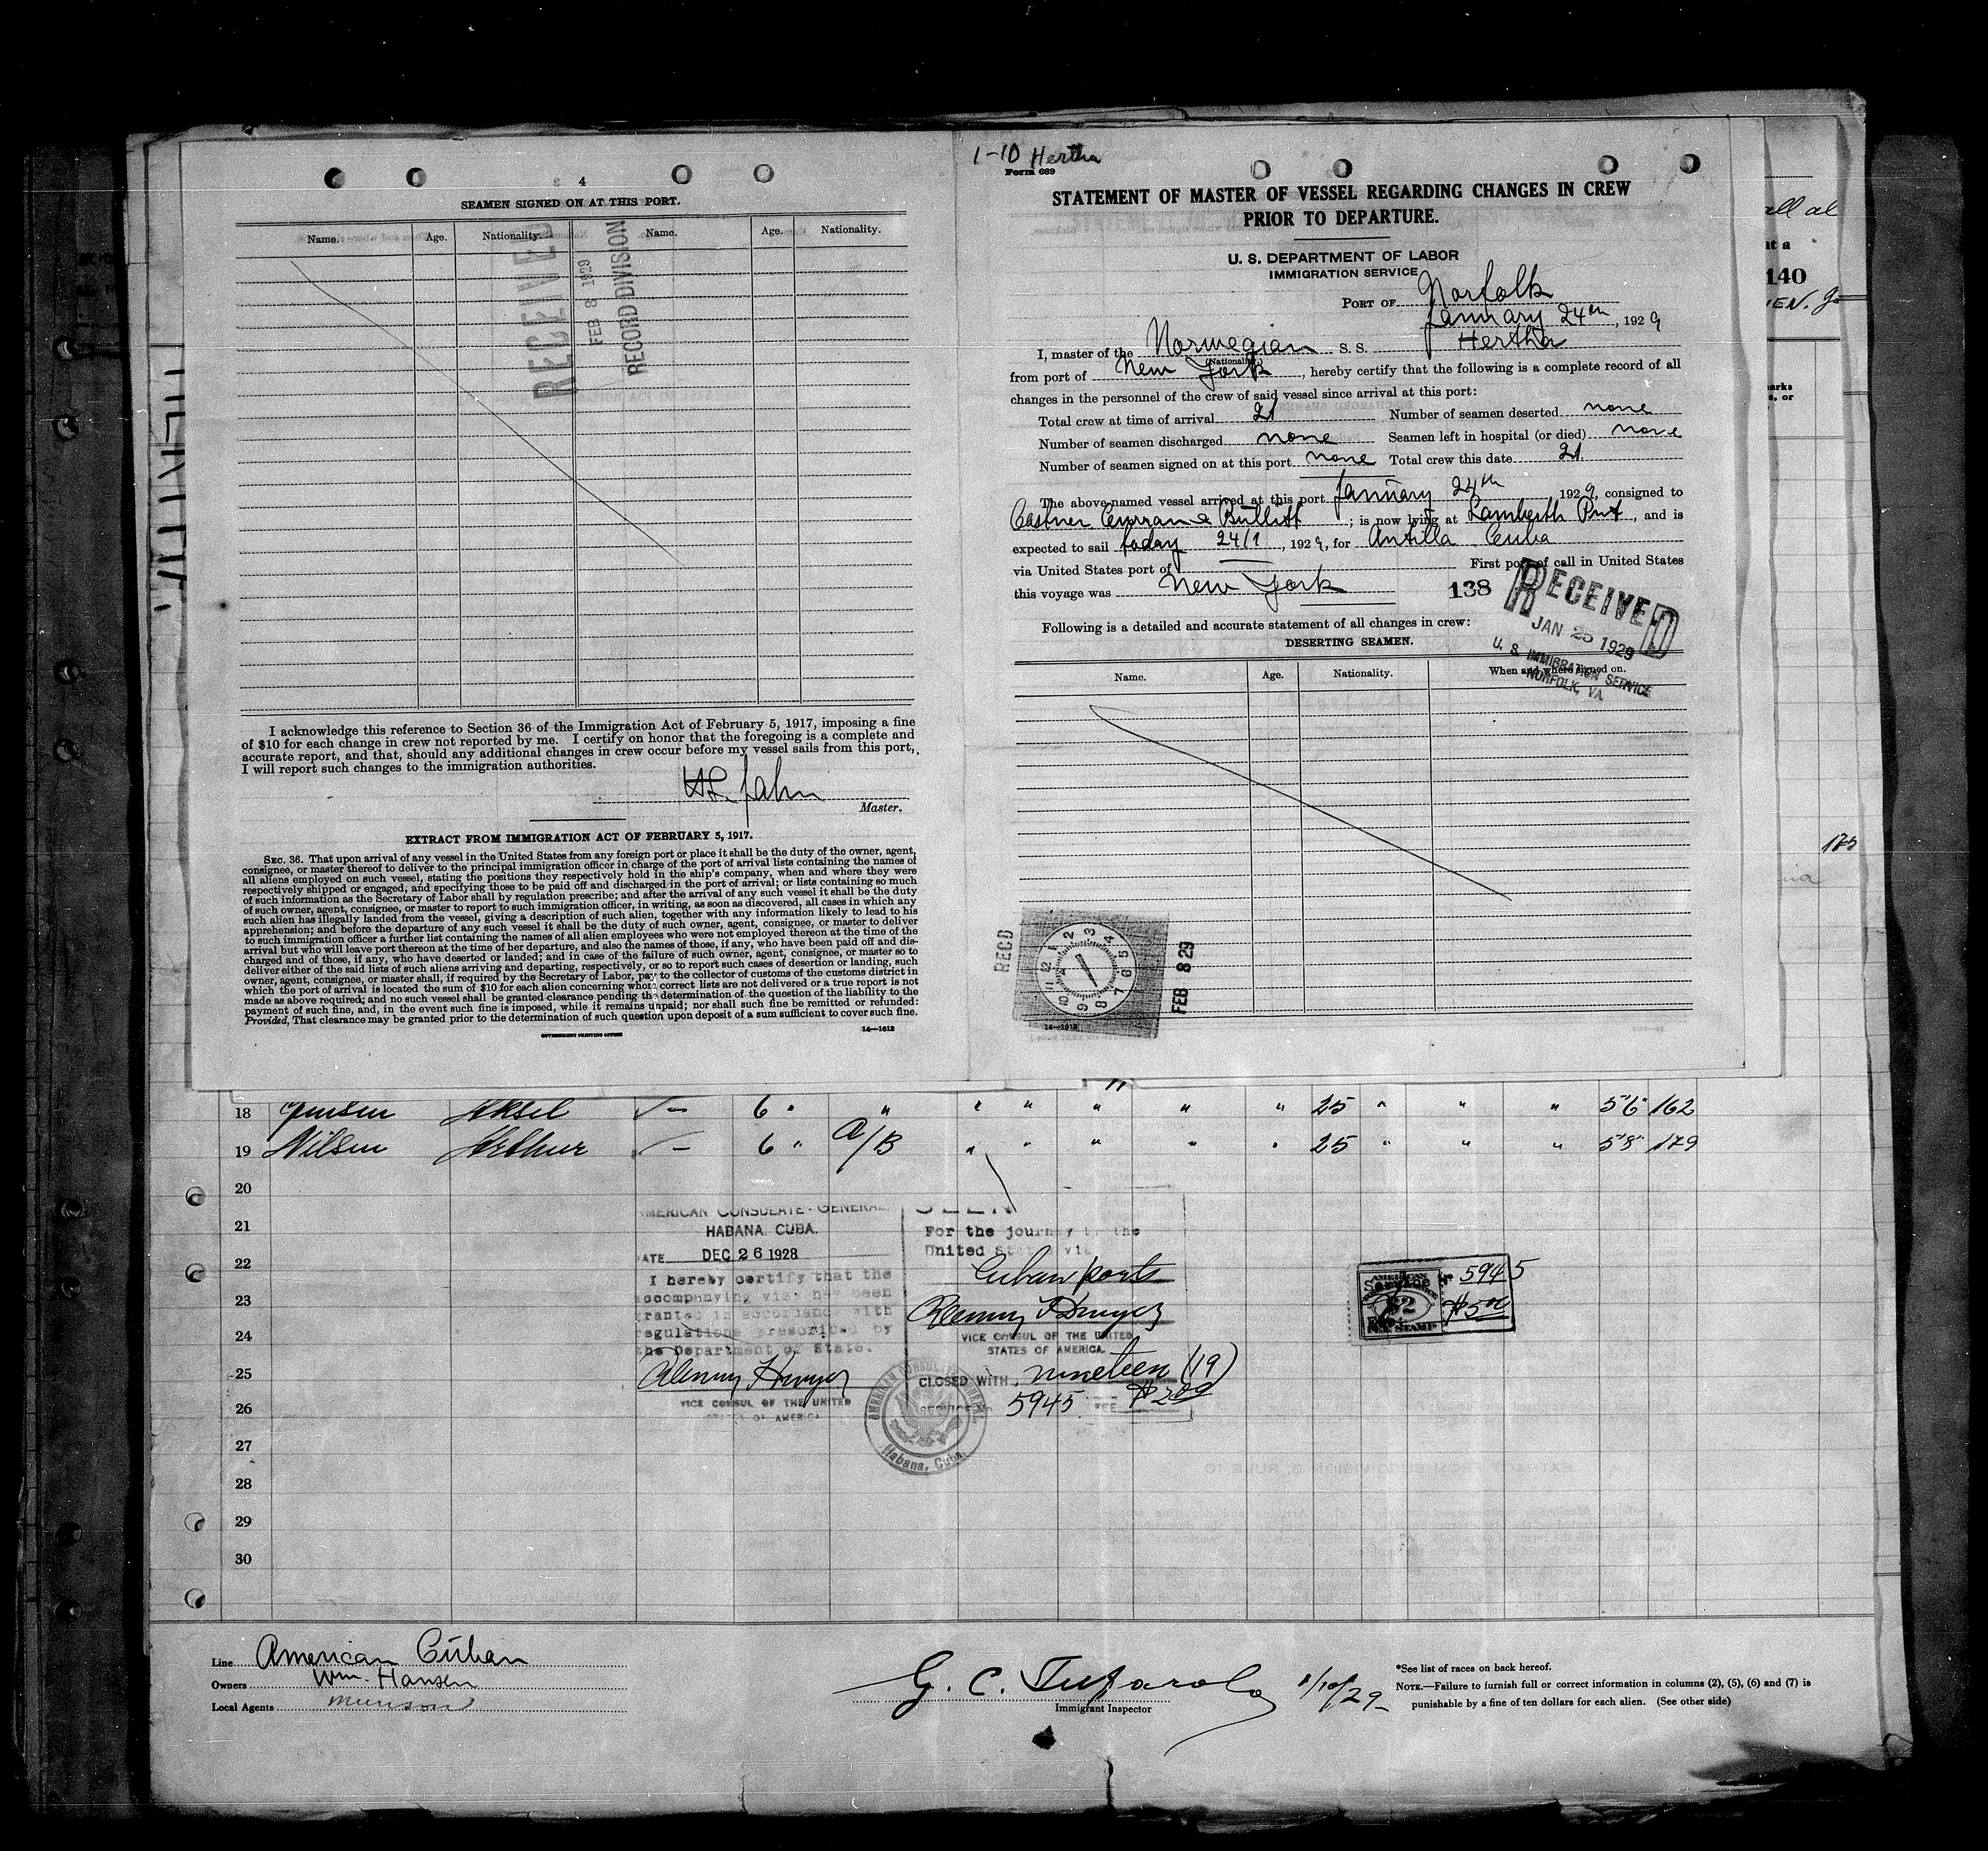 4
SEAMEN SIGNED ON AT THIS PORT.
Name. Age. Nationality. Name. Age. Nationality.
RECEIVED
FEB 8 1929
RECORD DIVISION
I acknowledge this reference to Section 36 of the Immigration Act of February 5, 1917, imposing a fine
of $10 for each change in crew not reported by me. I certify on honor that the foregoing is a complete and
accurate report, and that, should any additional changes in crew occur before my vessel sails from this port,
I will report such changes to the immigration authorities.
Jahn
Master.
EXTRACT FROM IMMIGRATION ACT OF FEBRUARY 5, 1917.
SEC. 36. That upon arrival of any vessel in the United States from any foreign port or place it shall be the duty of the owner, agent,
consignee, or master thereof to deliver to the principal immigration officer in charge of the port of arrival lists containing the names of
all aliens employed on such vessel, stating the positions they respectively hold in the ship's company, when and where they were
respectively shipped or engaged, and specifying those to be paid off and discharged in the port of arrival; or lists containing so much
of such information as the Secretary of Labor shall by regulation prescribe; and after the arrival of any such vessel it shall be the duty
of such owner, agent, consignee, or master to report to such immigration officer, in writing, as soon as discovered, all cases in which any
such alien has illegally landed from the vessel, giving a description of such alien, together with any information likely to lead to his
apprehension; and before the departure of any such vessel it shall be the duty of such owner, agent, consignee, or master to deliver
to such immigration officer a further list containing the names of all alien employees who were not employed thereon at the time of the
arrival but who will leave port thereon at the time of her departure, and also the names of those, if any, who have been paid off and dis-
charged and of those, if any, who have deserted or landed; and in case of the failure of such owner, agent, consignee, or master so to
deliver either of the said lists of such aliens arriving and departing, respectively, or so to report such cases of desertion or landing, such
owner, agent, consignee, or master shall, if required by the Secretary of Labor, pay to the collector of customs of the customs district in
which the port of arrival is located the sum of $10 for each alien concerning whom correct lists are not delivered or a true report is not
made as above required; and no such vessel shall be granted clearance pending the determination of the question of the liability to the
payment of such fine, and, in the event such fine is imposed, while it remains unpaid; nor shall such fine be remitted or refunded:
Provided, That clearance may be granted prior to the determination of such question upon deposit of a sum sufficient to cover such fine.
GOVERNMENT PRINTING OFFICE 14—1613
1-10 Hertha
Form 689
STATEMENT OF MASTER OF VESSEL REGARDING CHANGES IN CREW
PRIOR TO DEPARTURE.
U. S. DEPARTMENT OF LABOR
IMMIGRATION SERVICE
PORT OF Norfolk
January 24th, 1929
I, master of the Norwegian S. S. Hertha
(Nationality)
from port of New York, hereby certify that the following is a complete record of all
changes in the personnel of the crew of said vessel since arrival at this port:
Total crew at time of arrival 21 Number of seamen deserted none
Number of seamen discharged none Seamen left in hospital (or died) none
Number of seamen signed on at this port none Total crew this date 21.
The above-named vessel arrived at this port January 24th 1929, consigned to
Castner Curran & Bullitt; is now lying at Lamberth Pnt, and is
expected to sail today 24/1, 1929, for Antilla Cuba
via United States port of First port of call in United States
this voyage was New York
138
RECEIVED
JAN 25 1929
U. S. IMMIGRATION SERVICE
NORFOLK, VA.
Following is a detailed and accurate statement of all changes in crew:
DESERTING SEAMEN.
Name. Age. Nationality. When and where signed on.
RECD
1 2 3 4 5 6 7 8 9 10 11 12
FEB 8 29
14—1613
all al
at a
140
EN. Jo
arks
s, or
175
18 Jensen Aksel √ - 6 " " " " " " " 25 " " " 5'6" 162
19 Nilsen Arthur √ - 6 " A/B " " " " " 25 " " " 5'8" 179
20
21
22
23
24
25
26
27
28
29
30
AMERICAN CONSULATE-GENERAL
HABANA, CUBA.
DATE DEC 26 1928
I hereby certify that the
accompanying visa has been
granted in accordance with
regulations prescribed by
the Department of State.
VICE CONSUL OF THE UNITED
STATES OF AMERICA
SEEN
For the journey to the
United States via
Cuban ports
VICE CONSUL OF THE UNITED
STATES OF AMERICA.
CLOSED WITH nineteen (19)
SERVICE No. 5945 FEE $2.00
AMERICAN CONSULATE GENERAL
Habana, Cuba.
Service Nr 5945
$2
$5.00
FEE STAMP
Line American Cuban
Owners Wm. Hansen
Local Agents Munson
G. C. Tufarolo 1/10/29
Immigrant Inspector
*See list of races on back hereof.
NOTE.—Failure to furnish full or correct information in columns (2), (5), (6) and (7) is
punishable by a fine of ten dollars for each alien. (See other side)